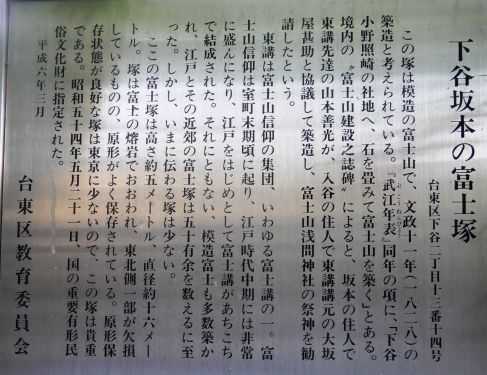 下谷坂本の富士塚
台東区下谷二丁目十三番十四号
この塚は模造の富士山で、文政十一年（一八二八）の
築造と考えられている。『武江年表』同年の項に、「下谷
小野照崎の社地へ、石を畳みて富士山を築く」とある。
境内の〝富士山建設之誌碑〟によると、坂本の住人で
東講先達の山本善光が、入谷の住人で東講講元の大坂
屋甚助と協議して築造し、富士山浅間神社の祭神を勧
請したという。
東講は富士山信仰の集団、いわゆる富士講の一。富
士山信仰は室町末期頃に起り、江戸時代中期には非常
に盛んになり、江戸をはじめとして富士講があちこち
で結成された。それにともない、模造富士も多数築か
れ、江戸とその近郊の富士塚は五十有余を数えるに至
った。しかし、いまに伝わる塚は少ない。
ここの富士塚は高さ約五メートル、直径約十六メー
トル。塚は富士の熔岩でおおわれ、東北側一部が欠損
しているものの、原形がよく保存されている。原形保
存状態が良好な塚は東京に少ないので、この塚は貴重
である。昭和五十四年五月二十一日、国の重要有形民
俗文化財に指定された。
平成六年三月
台東区教育委員会